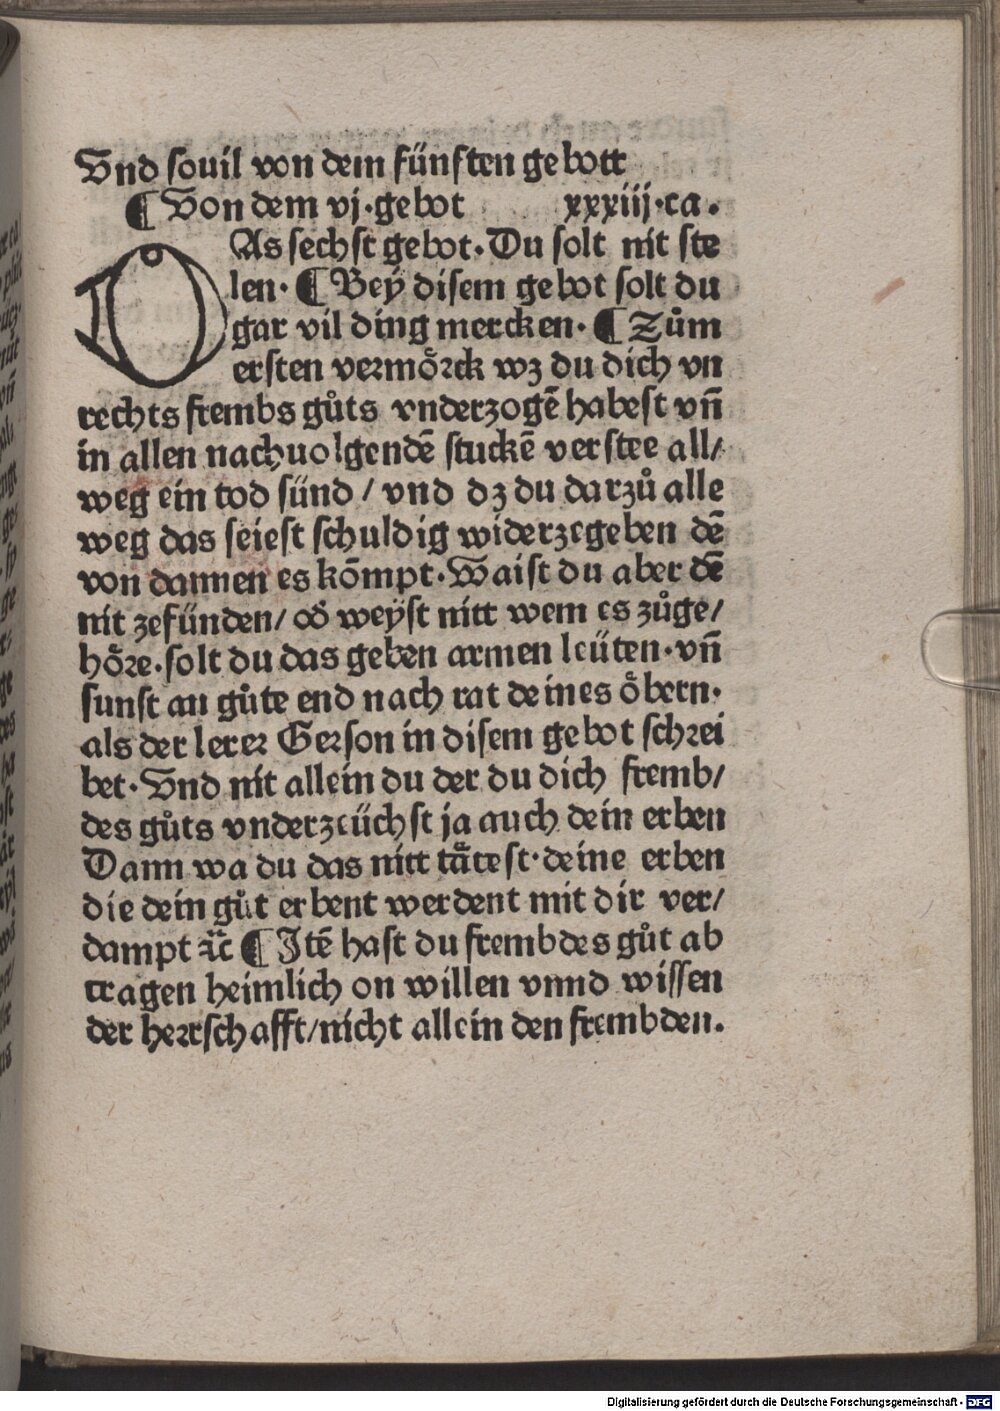 Vnd souil von dem fünften gebott
¶ Von dem vj·gebot xxxiij·ca.
DAs sechst gebot·Du solt nit ste
len·¶ Beÿ disem gebot solt du
gar vil ding mercken·¶ Zům
ersten vermoͤrck wz du dich vn
rechts frembs gůts vnderzogē habest vn̄
in allen nachuolgendē stuckē verstee all/
weg ein tod sünd / vnd dz du darzů alle
weg das seiest schuldig widerzegeben dē
von dannen es kōmpt·Waist du aber dē
nit zefünden/ od̕ weÿst nitt wem es zůge/
hoͤre·solt du das geben armen leüten·vn̄
sunst an gůte end nach rat deines oͤbern·
als der lerer Gerson in disem gebot schrei
bet·Vnd nit allein du der du dich fremb/
des gůts vnderzeüchst ja auch dein erben
Dann wa du das nitt taͤtest·deine erben
die dein gůt erbent werdent mit dir ver/
dampt ⁊c̄ ¶ Itē hast du frembdes gůt ab
tragen heimlich on willen vnnd wissen
der herrschafft/nicht allein den frembden.
Digitalisierung gefördert durch die Deutsche Forschungsgemeinschaft - DFG